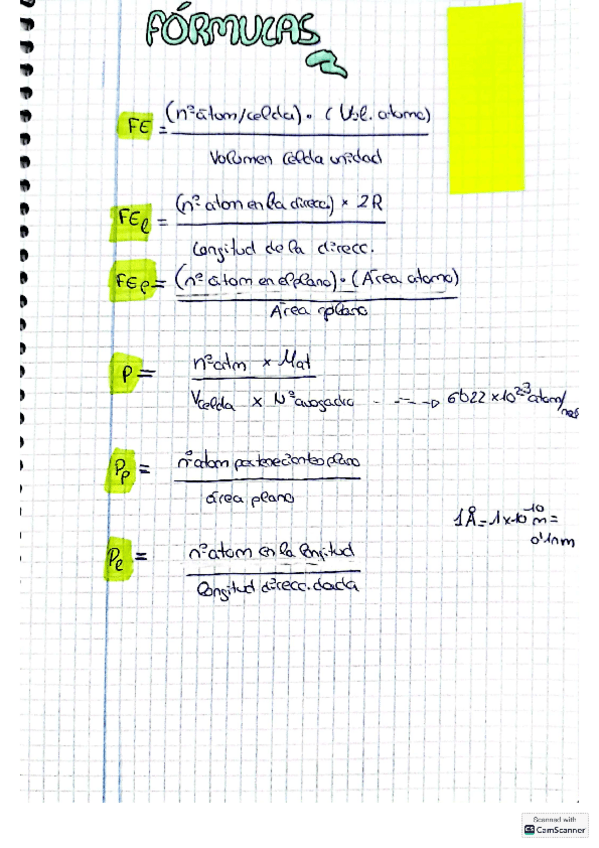 FÓRMULAS
FE = (nº átom/celda) · (Vol. atomo)
Volumen Celda unidad
FEl = (nº atom en la direcc.) × 2R
Longitud de la direcc.
FEp = (nº átom en el plano) · (Área atomo)
Área plano
P = nº atm × Mat
Vcelda × Nº avogadro ----→ 6'022 × 10^23 atom/mol
Pp = nº atom pertenecientes plano
área plano
1Å = 1×10^-10 m =
0'1nm
Pl = nº atom en la longitud
Longitud direcc. dada
Scanned with
CS CamScanner